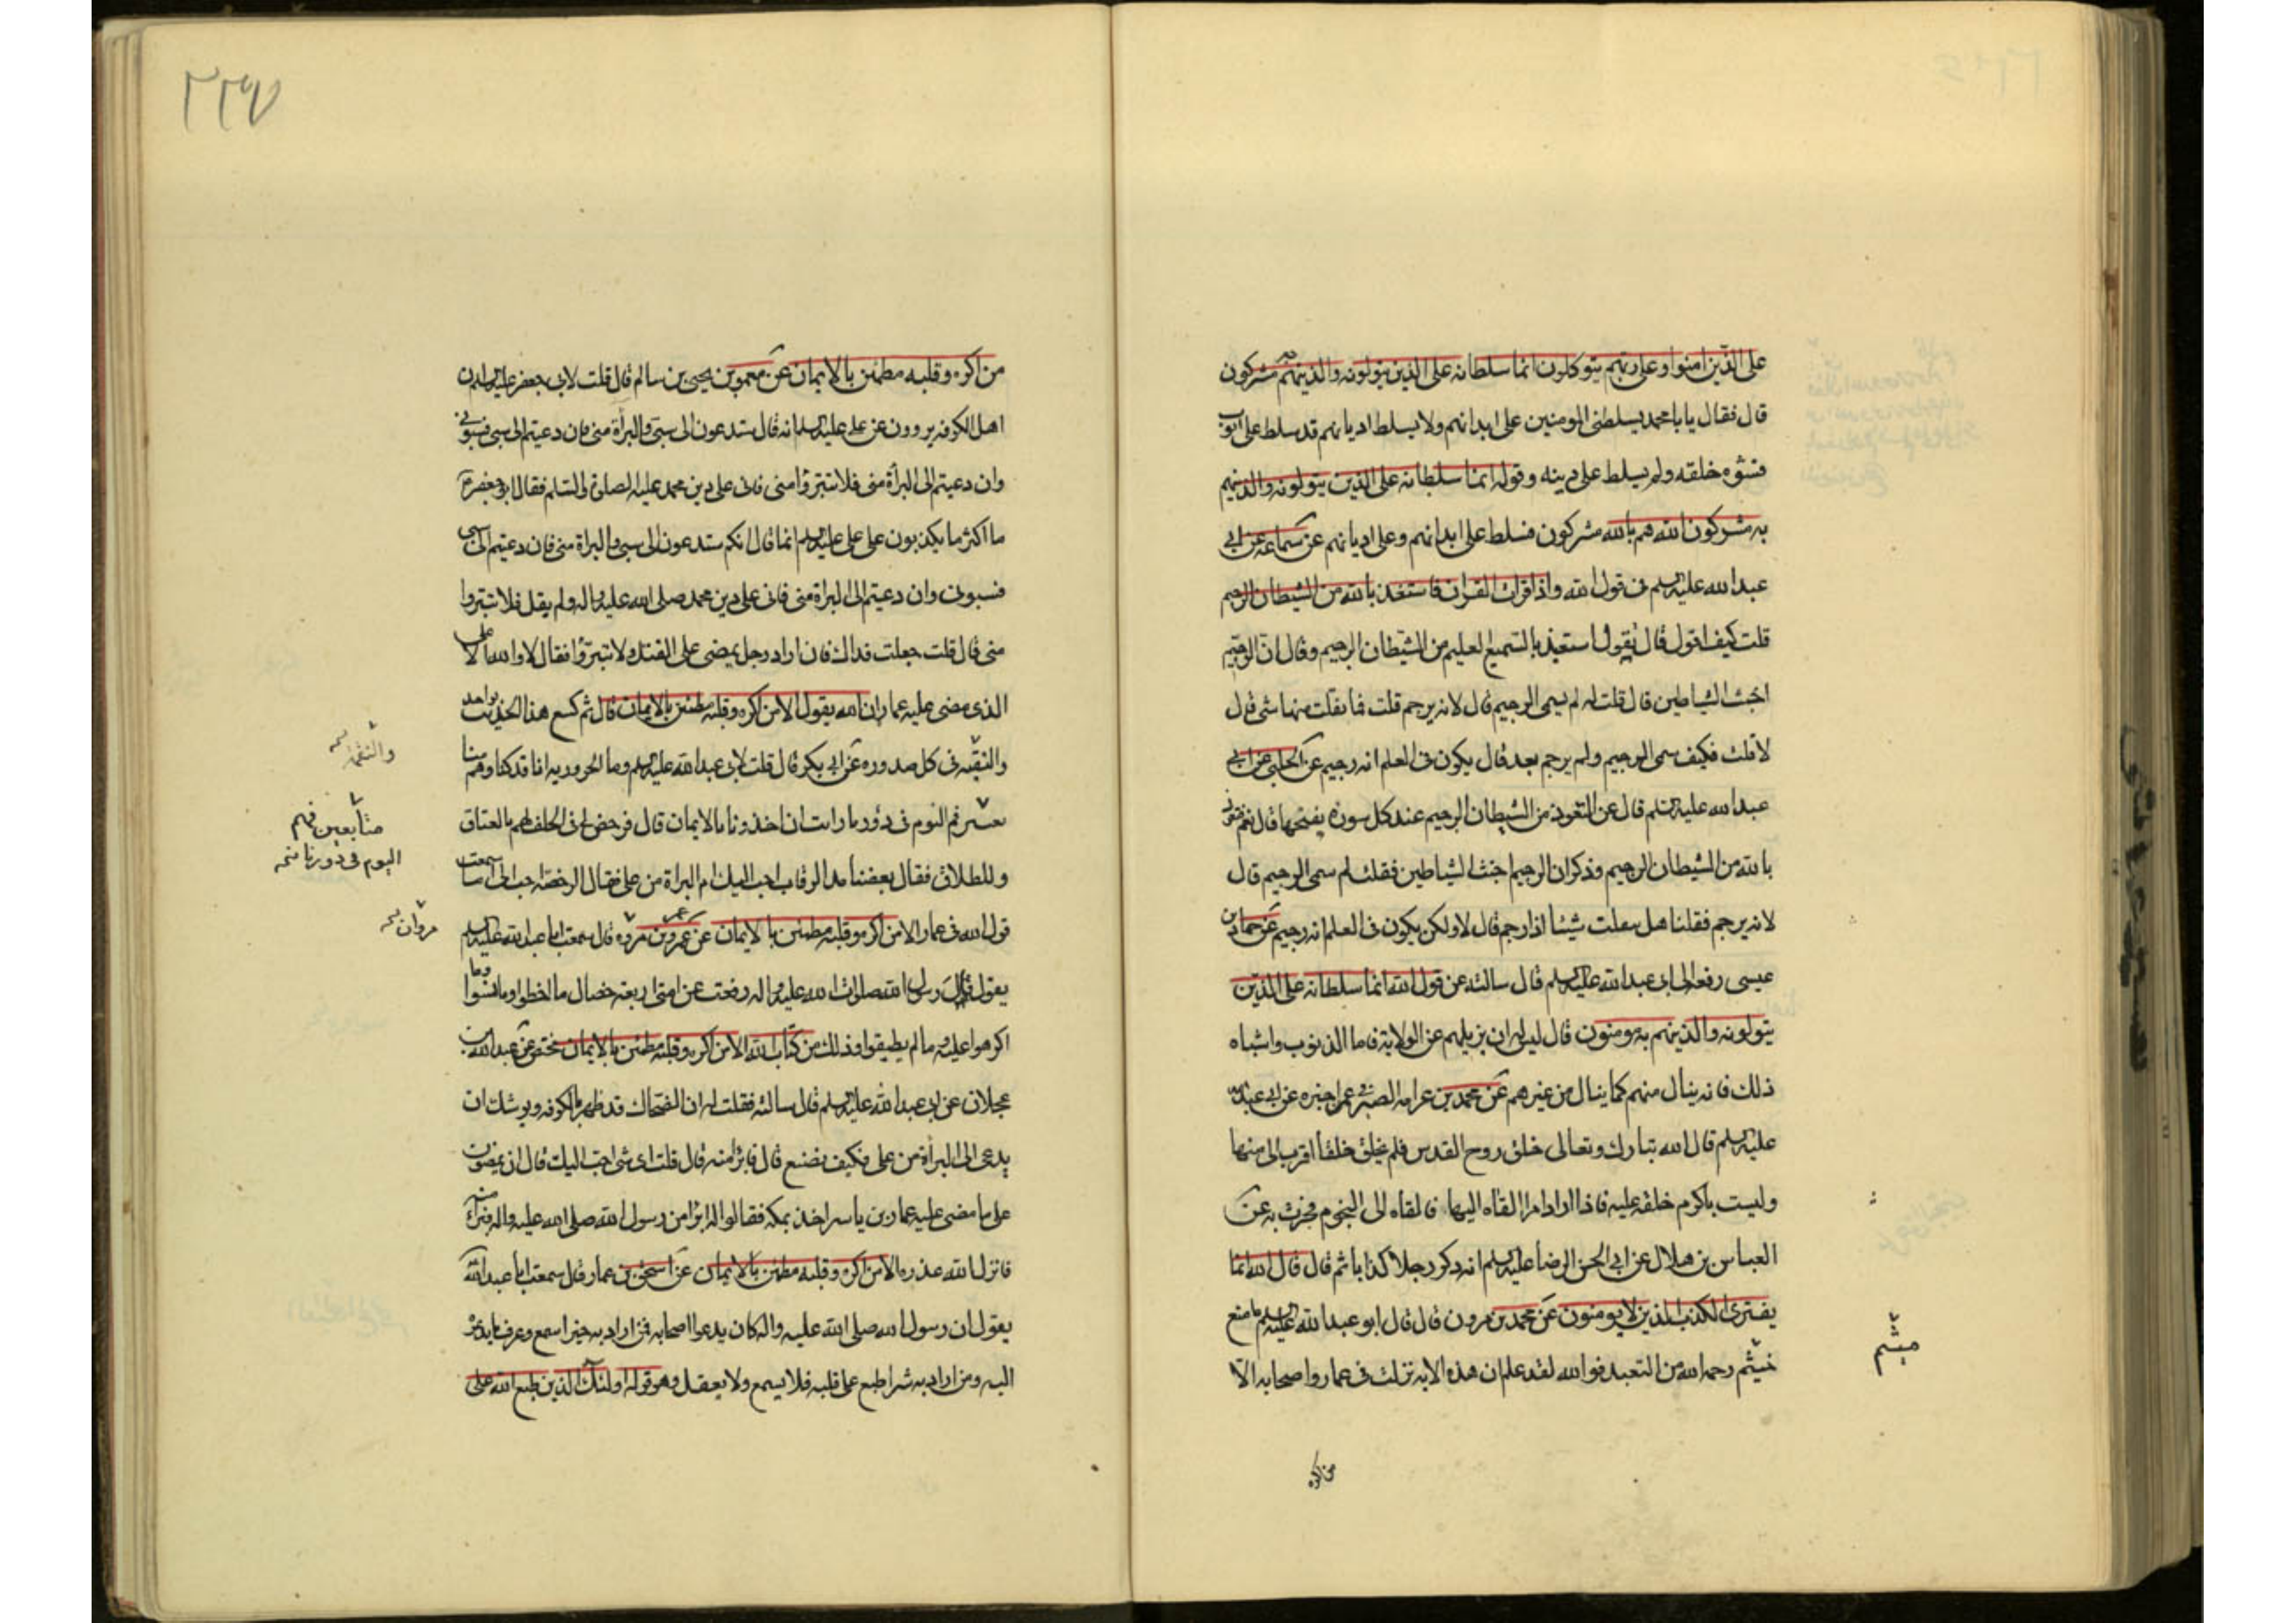 على الذين امنوا وعلى ربهم يتوكلون انما سلطانه على الذين يتولونه والذينهم به مشركون
قال فقال يا با محمد يسلط من المومنين على ابدانهم ولا يسلط اديانهم قد سلط على ايوب
فشوه خلقه ولم يسلط على دينه وقوله انما سلطانه على الذين يتولونه والذينهم
به مشركون الله هم بالله مشركون فسلط على ابدانهم وعلى اديانهم عن سماعه عن ابي
عبد الله عليه السلم في قول الله واذا قرات القران فاستعذ بالله من الشيطان الرجيم
قلت كيف اقول قال تقول استعيذ بالسميع العليم من الشيطان الرجيم وقال ان الرجيم
اخبث الشياطين قال قلت له لم يسمى الرجيم قال لانه يرجم قلت فما يفلت منها شي قال
لا قلت فكيف سمى الرجيم ولم يرجم بعد قال يكون في العلم انه رجيم عن الحلبي عن ابي
عبد الله عليه السلم قال عن التعوذ من الشيطان الرجيم عند كل سورة يفتحها قال نعم فتعوذ
بالله من الشيطان الرجيم وذكر ان الرجيم اخبث الشياطين فقلت لم سمى الرجيم قال
لانه يرجم فقلنا هل يفلت شيئا اذا رجم قال لا ولكن يكون في العلم انه رجيم عن حماد بن
عيسى رفعه الى ابي عبد الله عليه السلم قال سالته عن قول الله انما سلطانه على الذين
يتولونه والذينهم به مومنون قال ليس له ان يزيلهم عن الولاية فاما الذنوب واشباه
ذلك فانه ينال منهم كما ينال من غيرهم عن محمد بن عرامه الصيرفي عمن اخبره عن ابي عبد الله
عليه السلم قال الله تبارك وتعالى خلق روح القدس فلم يخلق خلقا اقرب الى منها
وليست باكرم خلقه عليه فاذا اراد امرا القاه اليها فالقاه الى النجوم فجرت به عن
العباس بن هلال عن ابي الحسن الرضا عليه السلم انه ذكر رجلا كذابا ثم قال قال الله انما
يفترى الكذب الذين لا يومنون عن محمد بن مروان قال قال ابو عبد الله عليه السلم ما منع
ميثم رحمه الله من التعبد فوالله لقد علم ان هذه الاية نزلت في عمار واصحابه الا
ميثم
من اكره
٢٢٧
من اكره وقلبه مطمئن بالايمان عن معمر بن يحيى بن سالم قال قلت لابي جعفر عليه السلم ان
اهل الكوفه يروون عن علي عليه السلم انه قال ستدعون الى سبي والبرأة مني فان دعيتم الى سبي فسبوني
وان دعيتم الى البرأة مني فلا تتبرؤا مني فاني على دين محمد عليه الصلوة والسلم فقال ابو جعفر
ما اكثر ما يكذبون على علي عليه السلم انما قال انكم ستدعون الى سبي والبراة مني فان دعيتم الى سبي
فسبوني وان دعيتم الى البراة مني فاني على دين محمد صلى الله عليه واله ولم يقل فلا تتبروا
مني قال قلت جعلت فداك فان اراد رجل يمضي على القتل ولا تتبرؤا فقال لا والله الا على
الذي مضى عليه عمار ان الله يقول الا من اكره وقلبه مطمئن بالايمان قال ثم كسع هذا الحديث بواحد
والتقيه في كل ضدوره عن ابي بكر قال قلت لابي عبد الله عليه السلم وما الحروريه انا قد كنا وهم منا
فهم اليوم في دورنا ارايت ان اخذونا بالايمان قال فرخص لي في الحلف لهم بالعتاق
وللطلاق فقال بعضنا مد الرقاب احب اليك ام البراة من علي فقال الرخصه احب الى اما سمعت
قول الله في عمار الا من اكره وقلبه مطمئن بالايمان عن عمرو بن مروه قال سمعت ابا عبد الله عليه السلم
يقول قال رسول الله صلوات الله عليه واله رفعت عن امتي اربعة خصال ما اخطوا وما نسوا وما
اكرهوا عليه وما لم يطيقوا وذلك من كتاب الله الا من اكره وقلبه مطمئن بالايمان مختصر عن عبد الله بن
عجلان عن ابي عبد الله عليه السلم قال سالته فقلت له ان الضحاك قد ظهر بالكوفه ويوشك ان
يدعى الى البرأة من علي فكيف نصنع قال فابرأ منه قال قلت اى شي احب اليك قال ان يمضون
على ما مضى عليه عمار بن ياسر اخذ بمكه فقالوا له ابرأ من رسول الله صلى الله عليه واله فبرأ منه
فانزل الله عذره الا من اكره وقلبه مطمئن بالايمان عن اسحق بن عمار قال سمعت ابا عبد الله
يقول ان رسول الله صلى الله عليه واله كان يدعوا اصحابه فمن اراد به خيرا سمع وعرف ما يدعوه
اليه ومن اراد به شرا طبع على قلبه فلا يسمع ولا يعقل وهو قوله اولئك الذين طبع الله على
والتقيه
متابعين فهم
اليوم في دورنا
مروان